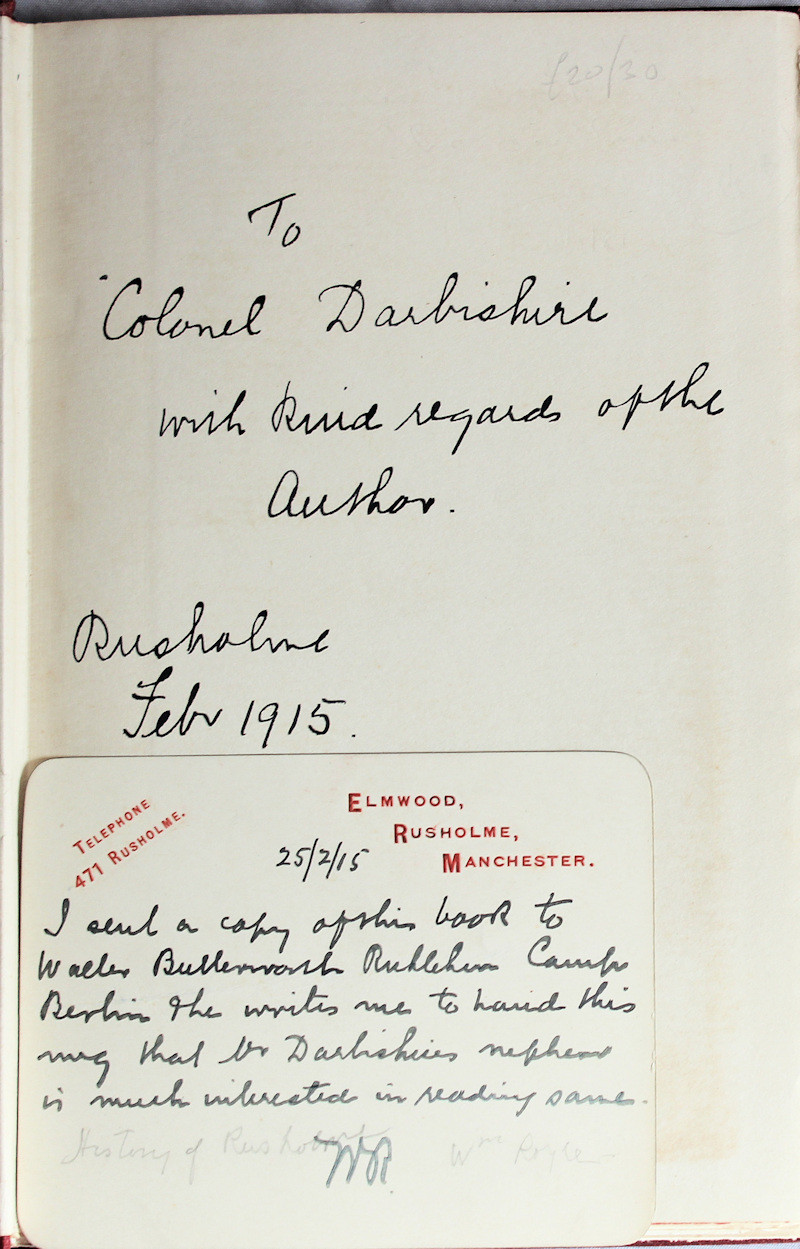 £20/30
To
Colonel Darbishire
with kind regards of the
Author.
Rusholme
Febr 1915.
TELEPHONE
471 RUSHOLME.
ELMWOOD,
RUSHOLME,
MANCHESTER.
25/2/15
I sent a copy of this book to
Walter Butterworth Ruhleben Camp
Berlin & he writes me to hand this
mrg that Dr Darbishires nephew
is much interested in reading same.
History of Rusholme
WR
Wm Royle